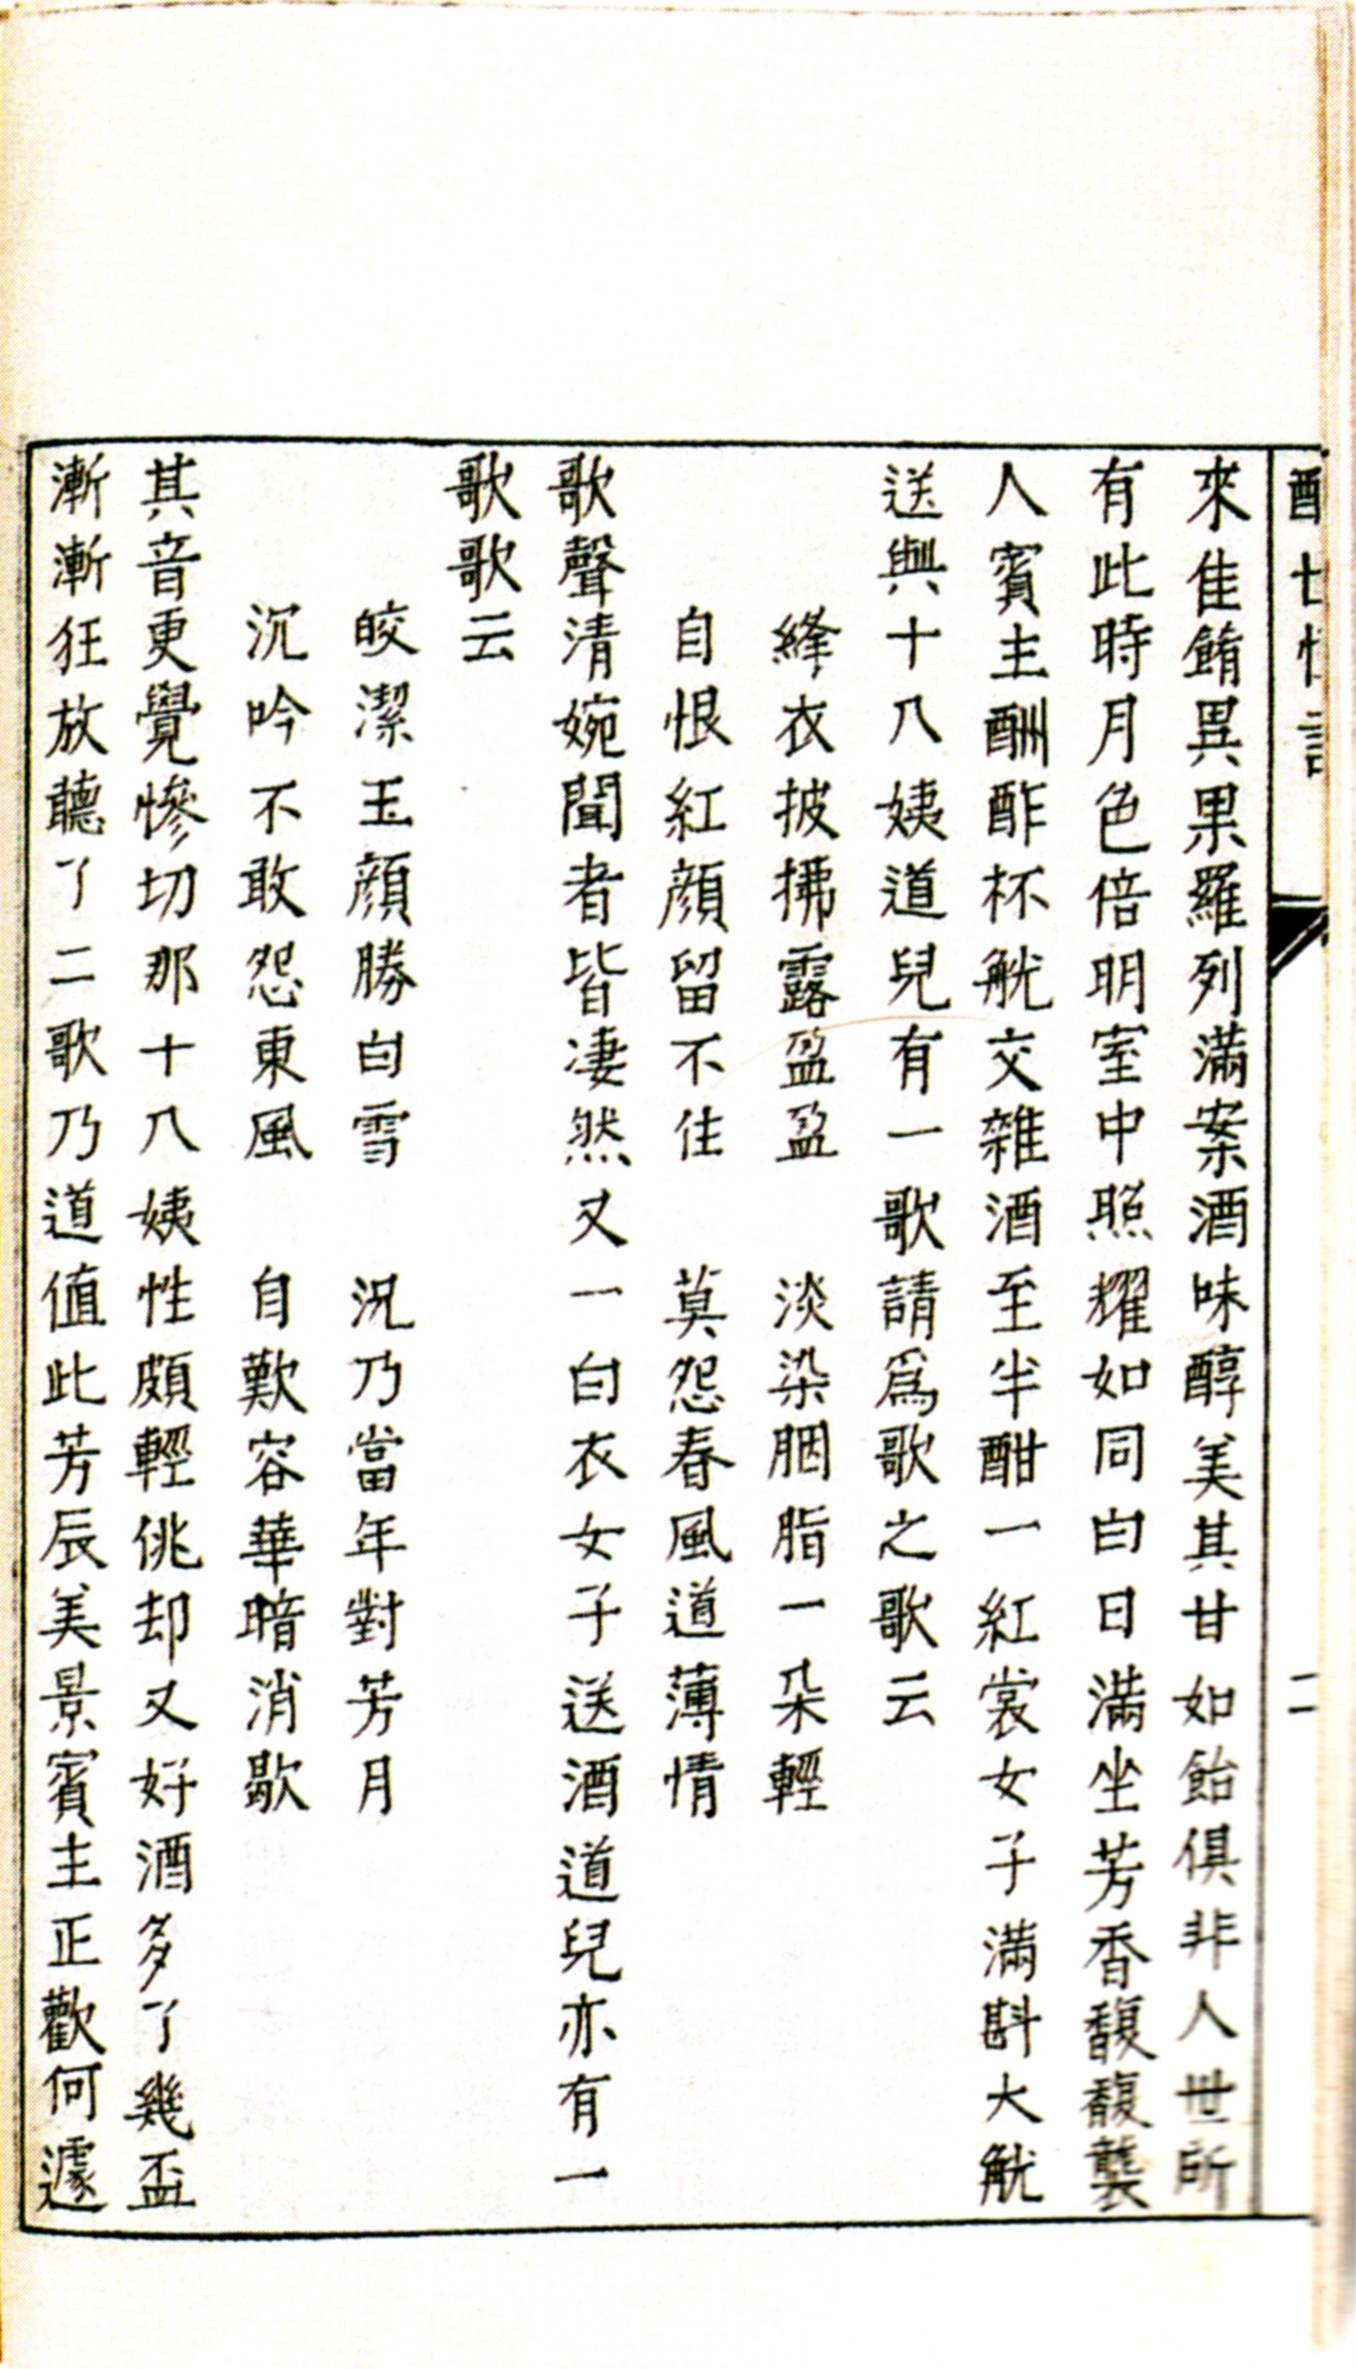 來佳餚異果羅列滿案酒味醇美其甘如飴俱非人世所
有此時月色倍明室中照耀如同白日滿坐芳香馥馥襲
人賓主酬酢杯觥交雜酒至半酣一紅裳女子滿斟大觥
送與十八姨道兒有一歌請爲歌之歌云
絳衣披拂露盈盈　淡染胭脂一朵輕
自恨紅顔留不住　莫怨春風道薄情
歌聲清婉聞者皆凄然又一白衣女子送酒道兒亦有一
歌歌云
皎潔玉顔勝白雪　況乃當年對芳月
沉吟不敢怨東風　自歎容華暗消歇
其音更覺慘切那十八姨性頗輕佻却又好酒多了幾盃
漸漸狂放聽了二歌乃道值此芳辰美景賓主正歡何遽